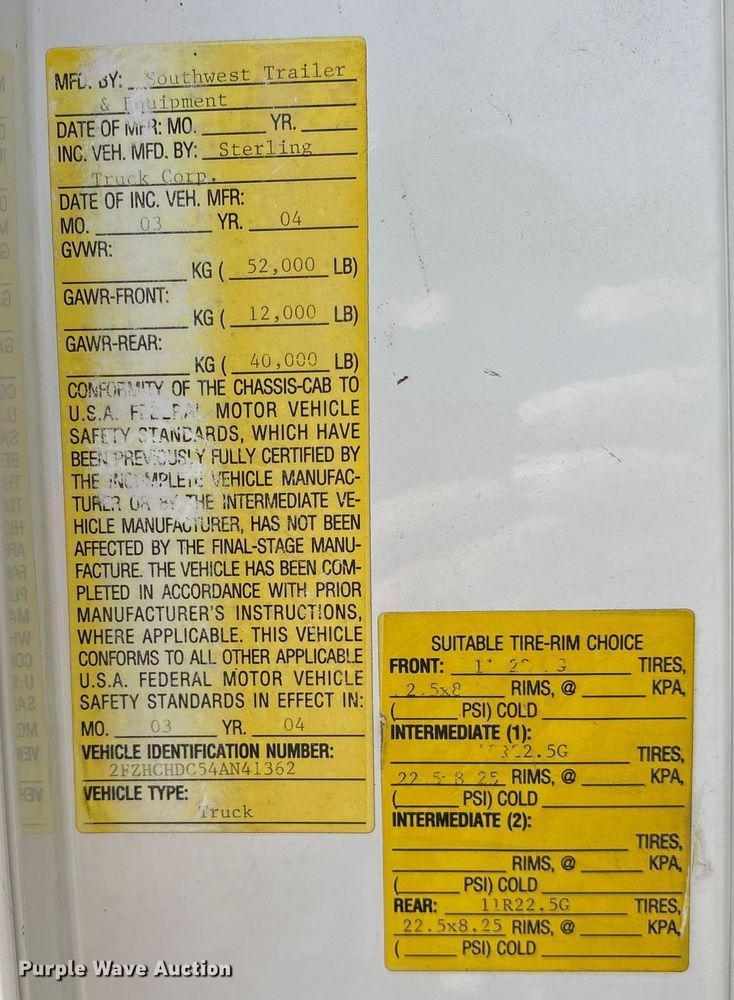 MFD. BY: Southwest Trailer
& Equipment
DATE OF MFR: MO. ______ YR. ______
INC. VEH. MFD. BY: Sterling
Truck Corp.
DATE OF INC. VEH. MFR:
MO. 03 YR. 04
GVWR:
______ KG ( 52,000 LB)
GAWR-FRONT:
______ KG ( 12,000 LB)
GAWR-REAR:
______ KG ( 40,000 LB)
CONFORMITY OF THE CHASSIS-CAB TO
U.S.A. FEDERAL MOTOR VEHICLE
SAFETY STANDARDS, WHICH HAVE
BEEN PREVIOUSLY FULLY CERTIFIED BY
THE INCOMPLETE VEHICLE MANUFAC-
TURER OR BY THE INTERMEDIATE VE-
HICLE MANUFACTURER, HAS NOT BEEN
AFFECTED BY THE FINAL-STAGE MANU-
FACTURE. THE VEHICLE HAS BEEN COM-
PLETED IN ACCORDANCE WITH PRIOR
MANUFACTURER'S INSTRUCTIONS,
WHERE APPLICABLE. THIS VEHICLE
CONFORMS TO ALL OTHER APPLICABLE
U.S.A. FEDERAL MOTOR VEHICLE
SAFETY STANDARDS IN EFFECT IN:
MO. 03 YR. 04
VEHICLE IDENTIFICATION NUMBER:
2FZHCHDC54AN41362
VEHICLE TYPE:
Truck
SUITABLE TIRE-RIM CHOICE
FRONT: TIRES,
RIMS, @ ______ KPA,
(______ PSI) COLD ______
INTERMEDIATE (1):
TIRES,
22.5 8.25 RIMS, @ ______ KPA,
(______ PSI) COLD ______
INTERMEDIATE (2):
______ TIRES,
______ RIMS, @ ______ KPA,
(______ PSI) COLD ______
REAR: 11R22.5G TIRES,
22.5x8.25 RIMS, @ ______ KPA,
(______ PSI) COLD ______
Purple Wave Auction